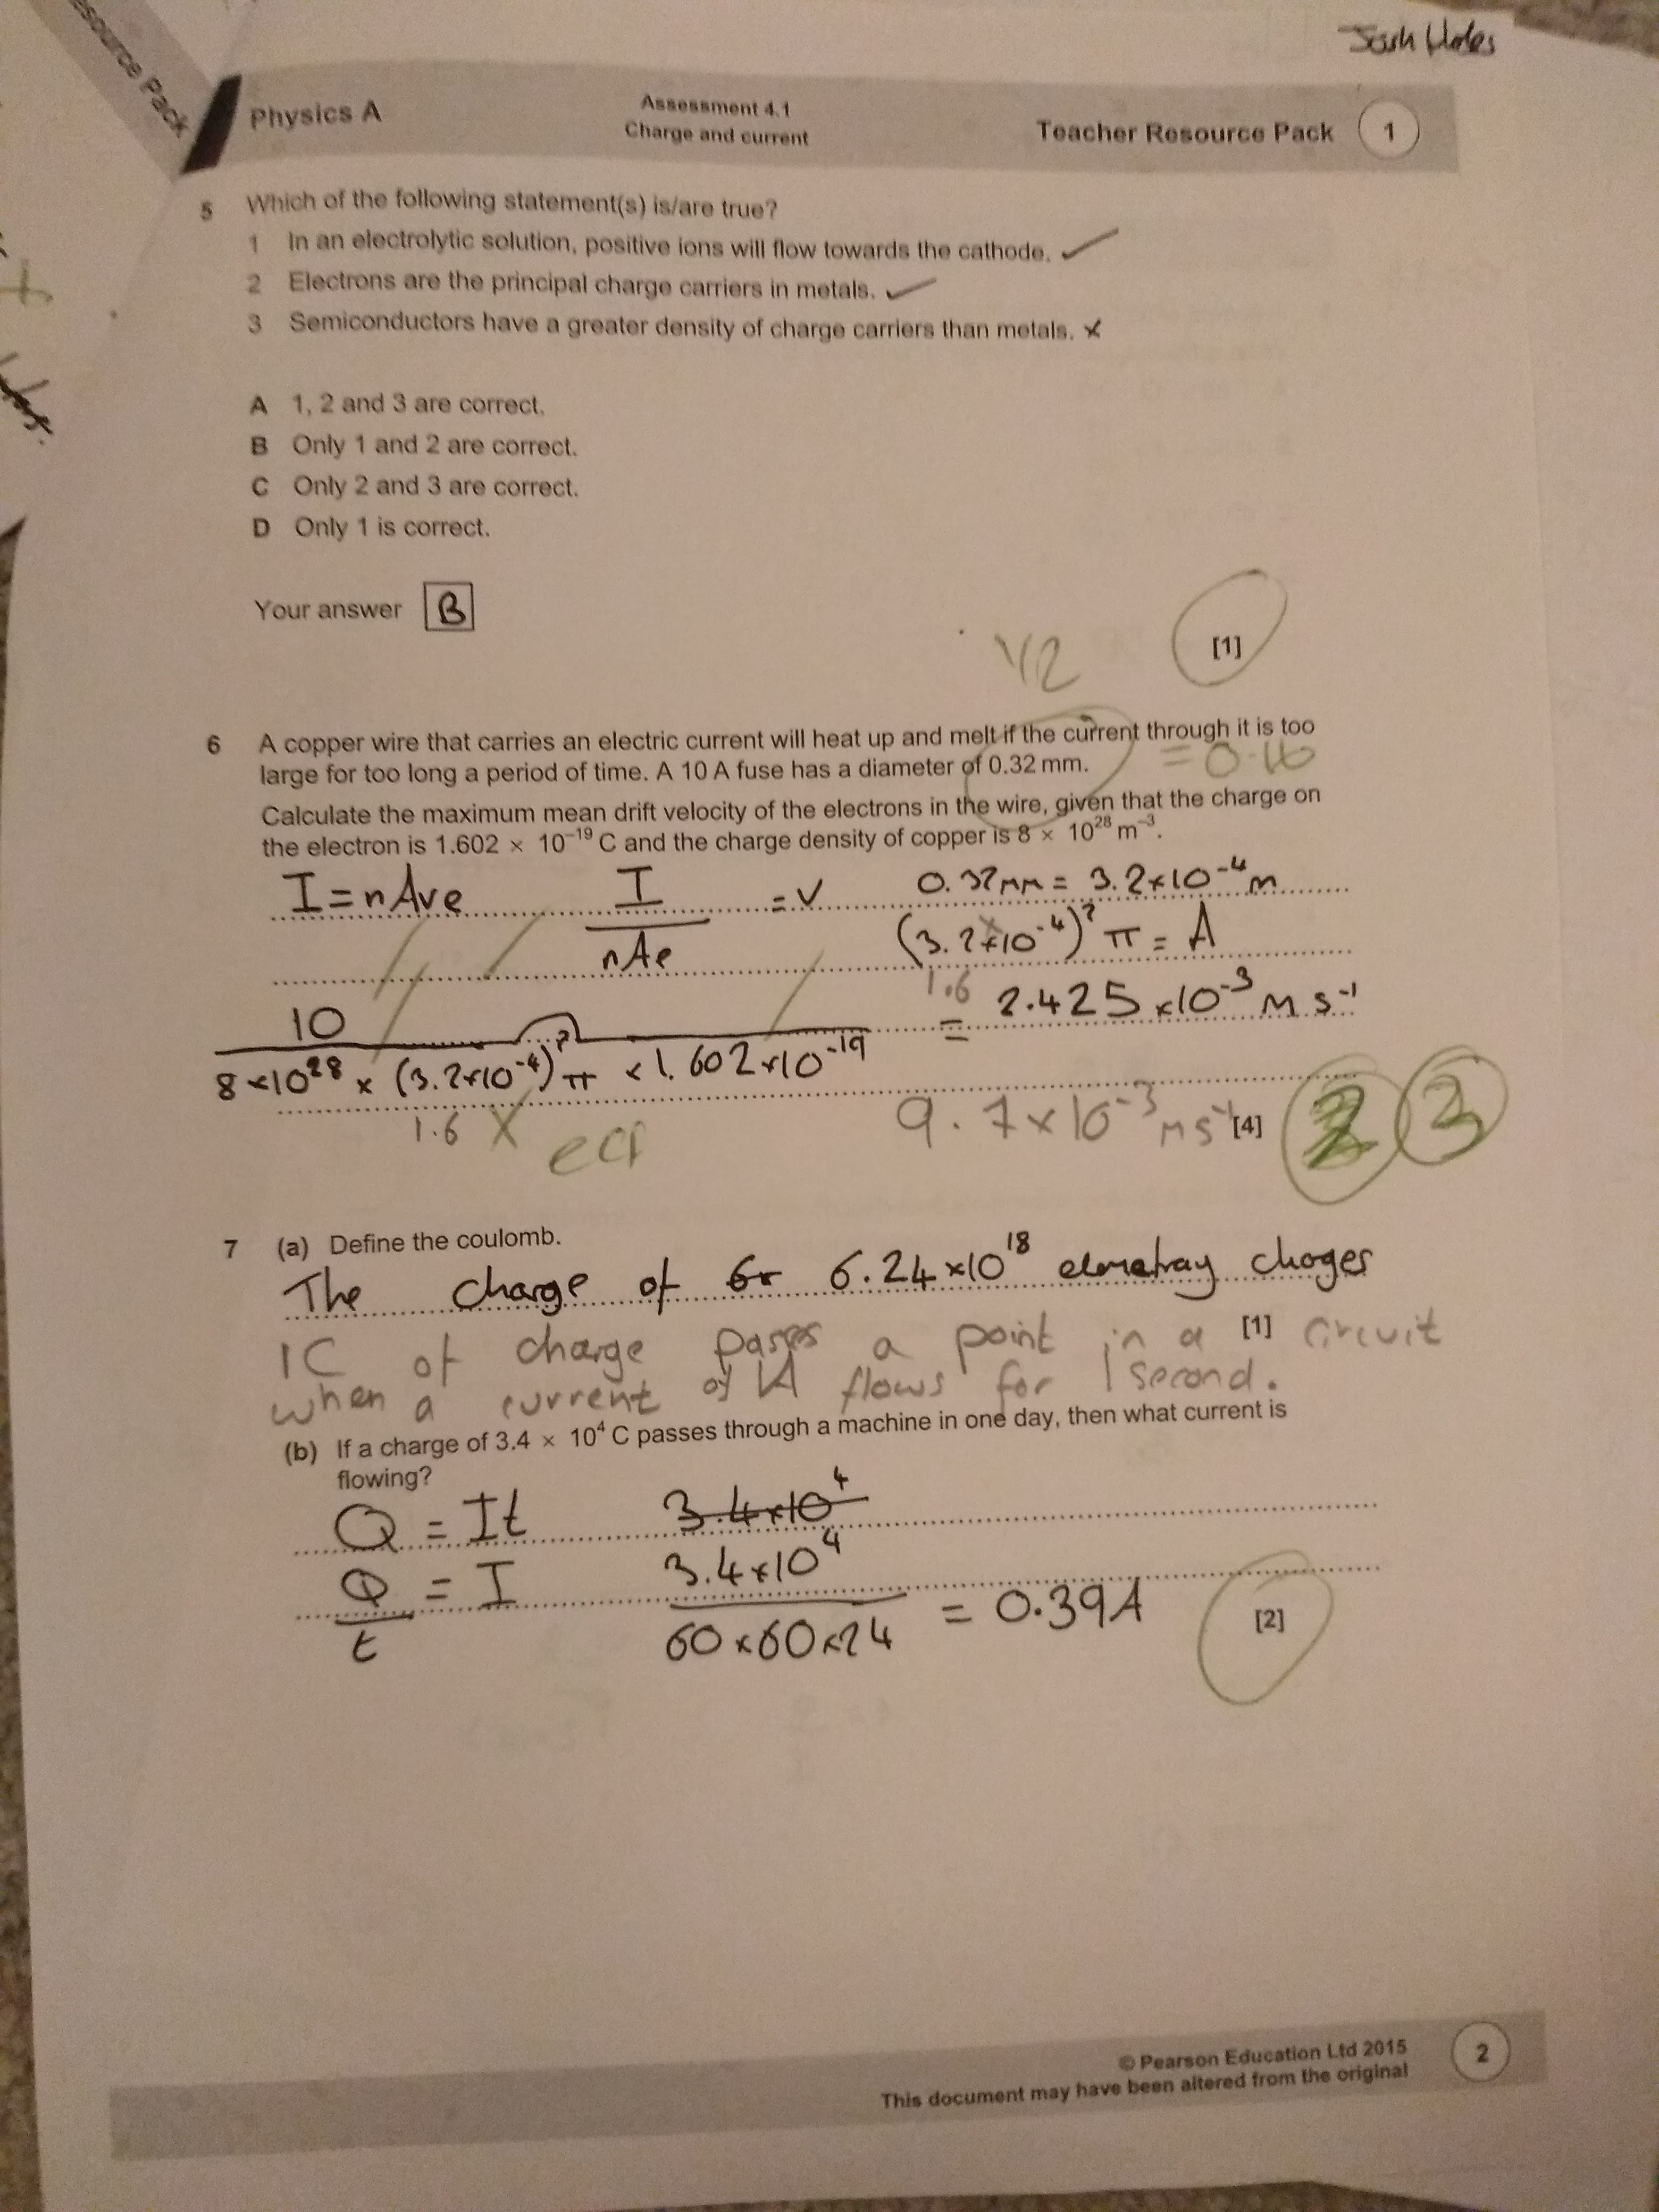 esource Pack
Physics A
Assessment 4.1
Charge and current
Teacher Resource Pack 1
5 Which of the following statement(s) is/are true?
1 In an electrolytic solution, positive ions will flow towards the cathode. ✓
2 Electrons are the principal charge carriers in metals. ✓
3 Semiconductors have a greater density of charge carriers than metals. ×
A 1, 2 and 3 are correct.
B Only 1 and 2 are correct.
C Only 2 and 3 are correct.
D Only 1 is correct.
Your answer B
[1]
1/2
6 A copper wire that carries an electric current will heat up and melt if the current through it is too
large for too long a period of time. A 10 A fuse has a diameter of 0.32 mm.
= 0.16
Calculate the maximum mean drift velocity of the electrons in the wire, given that the charge on
the electron is 1.602 × 10⁻¹⁹ C and the charge density of copper is 8 × 10²⁸ m⁻³.
I = nAve I/nAe = v 0.32mm = 3.2×10⁻⁴m
(3.2×10⁻⁴)² π = A
1.6
10 / 8×10²⁸ × (3.2×10⁻⁴)² π × 1.602×10⁻¹⁹ = 2.425×10⁻³ m s⁻¹
1.6 × ecf
9.7×10⁻³ ms⁻¹ [4] 3
7 (a) Define the coulomb.
The charge of 6.24×10¹⁸ elmetray charges
[1]
1C of charge passes a point in a circuit
when a current of 1A flows for 1 second.
(b) If a charge of 3.4 × 10⁴ C passes through a machine in one day, then what current is
flowing?
Q = It 3.4×10⁴
Q/t = I 3.4×10⁴ / 60×60×24 = 0.39A
[2]
© Pearson Education Ltd 2015
This document may have been altered from the original
2